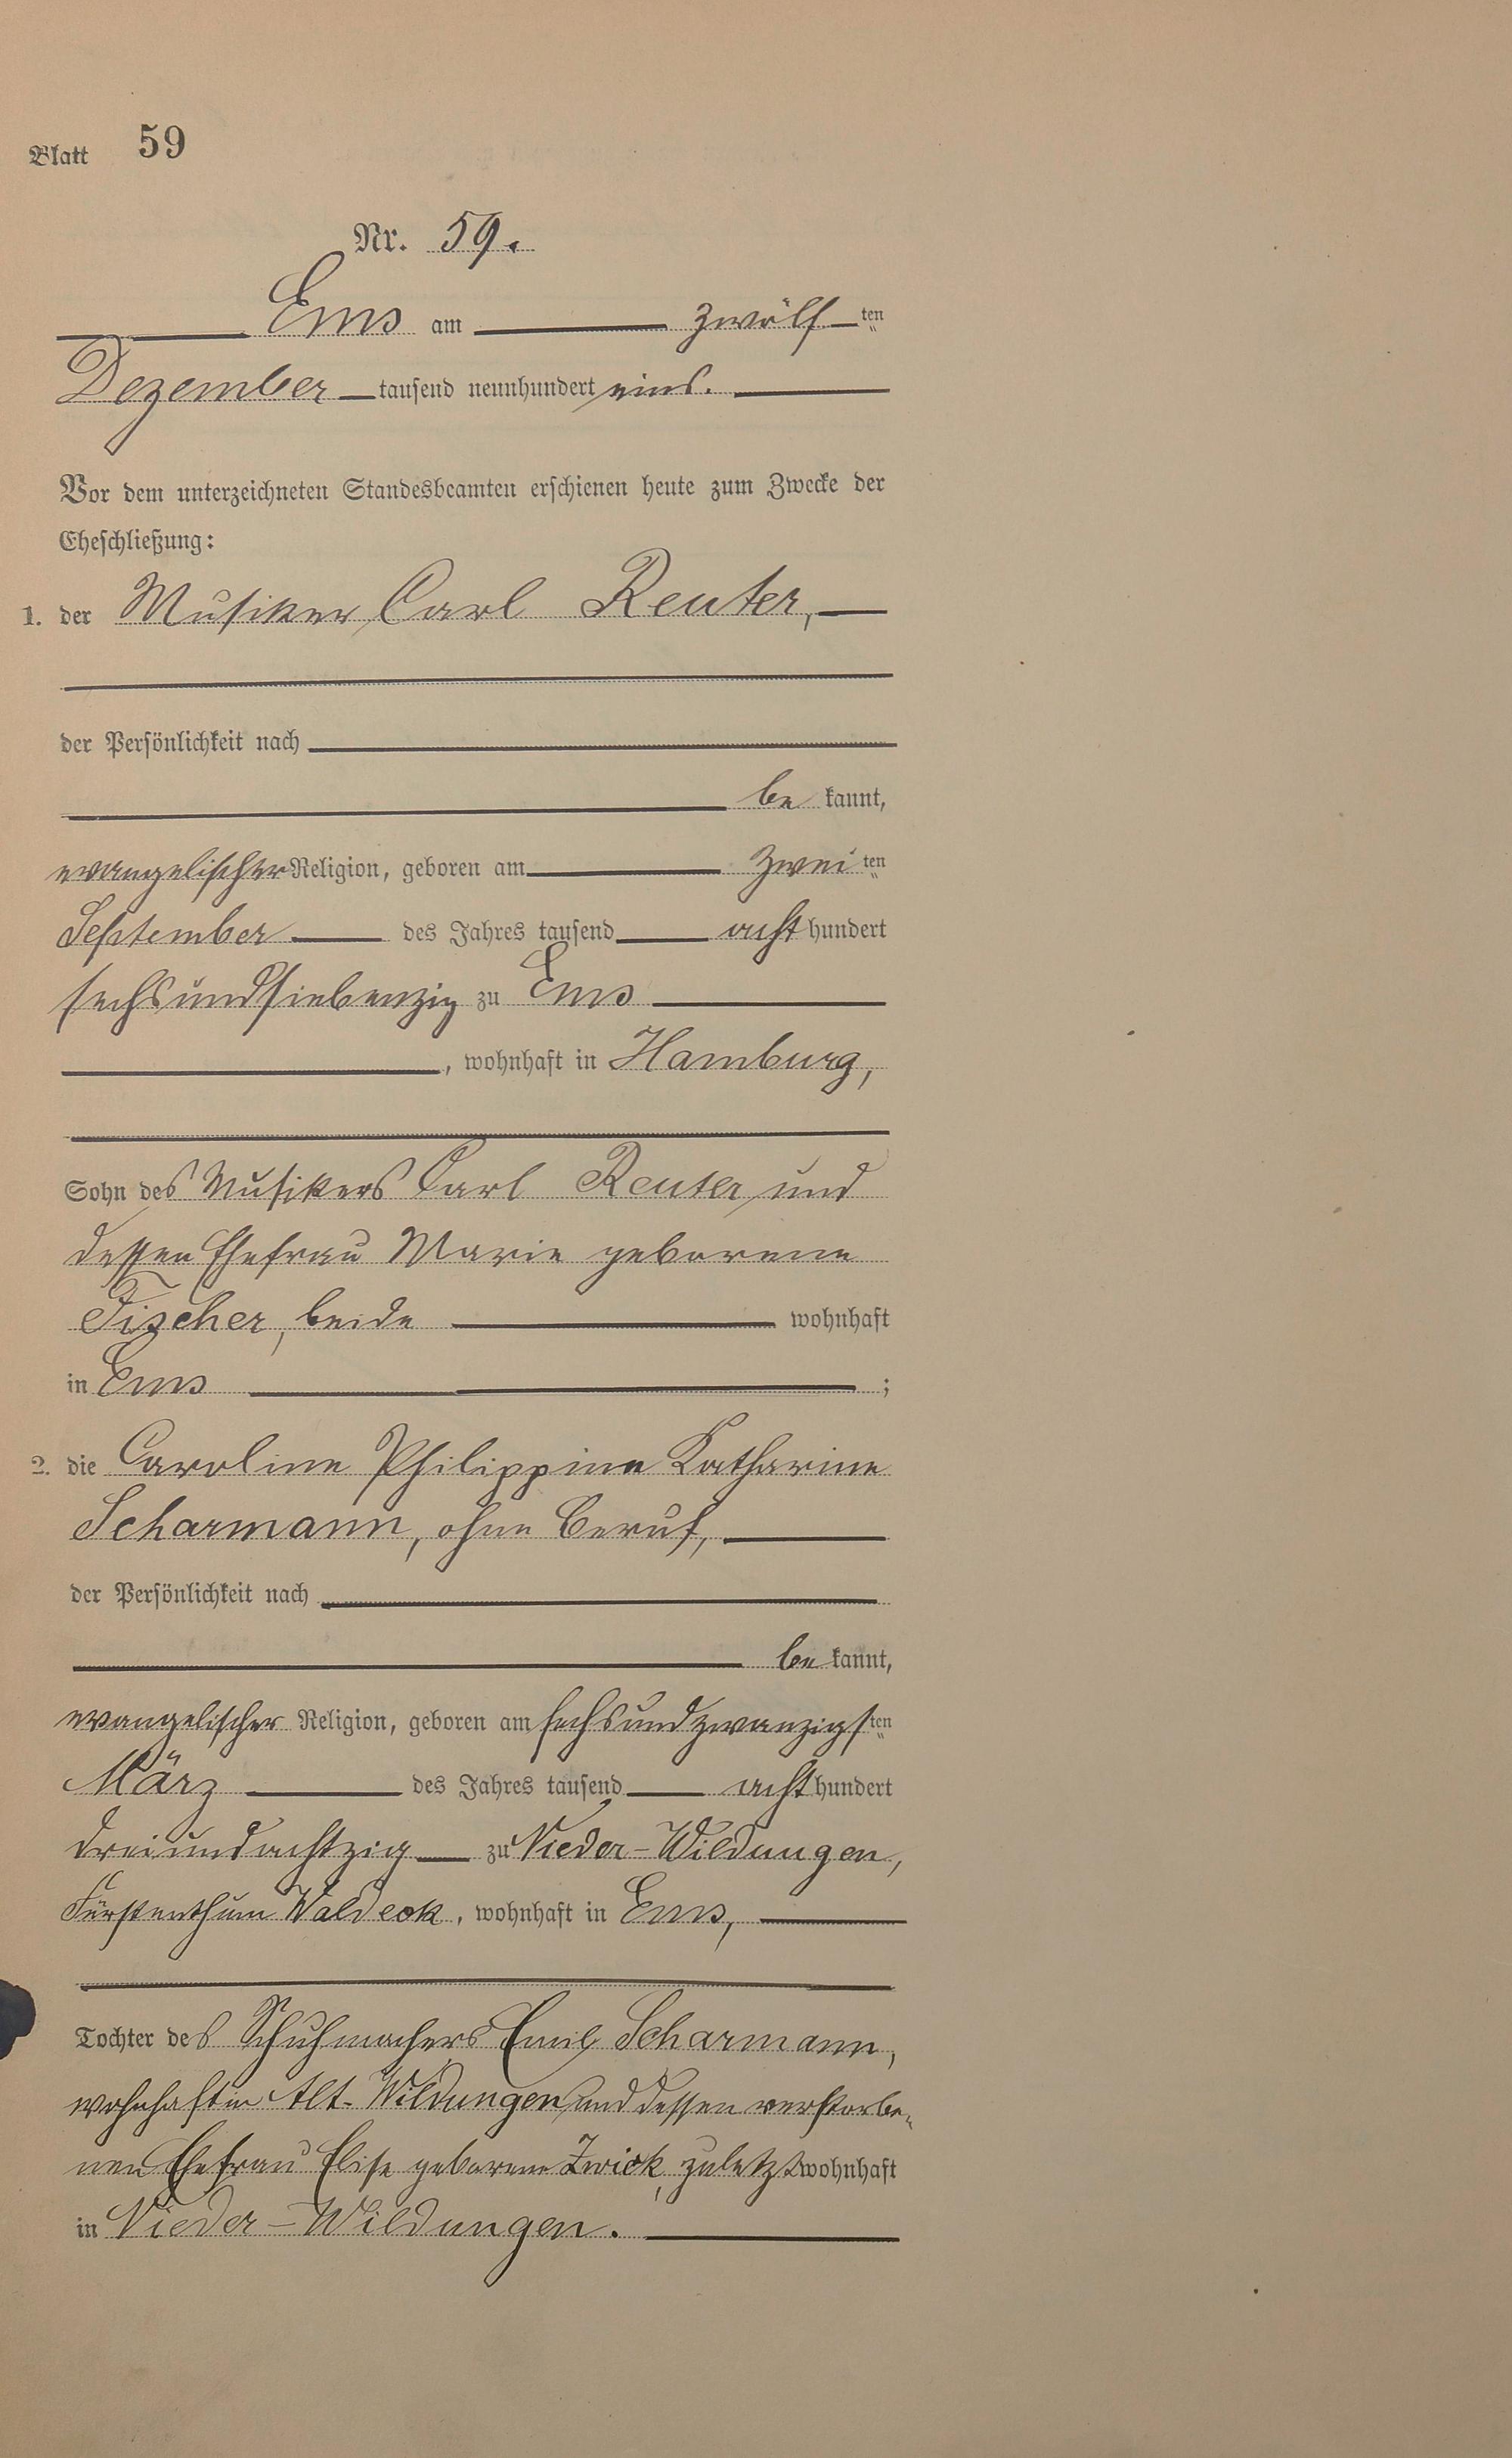 Blatt 59
Nr. 59.
Ems am zwölf ten
Dezember tausend neunhundert eins.
Vor dem unterzeichneten Standesbeamten erschienen heute zum Zwecke der
Eheschließung:
1. der Musiker Carl Reuter,
der Persönlichkeit nach
be kannt,
evangelischer Religion, geboren am zwei ten
September des Jahres tausend acht hundert
sechsundsiebenzig zu Ems
, wohnhaft in Hamburg,
Sohn des Musikers Carl Reuter und
dessen Ehefrau Marie geborene
Fischer, beide wohnhaft
in Ems ;
2. die Caroline Philippine Katharine
Scharmann, ohne Beruf,
der Persönlichkeit nach
be kannt,
evangelischer Religion, geboren am sechsundzwanzigs ten
März des Jahres tausend acht hundert
dreiundachtzig zu Nieder-Wildungen,
Fürstenthum Waldeck, wohnhaft in Ems,
Tochter des Schuhmachers Emil Scharmann,
wohnhaft in Alt-Wildungen und dessen verstorbe-
nen Ehefrau Elise geborene Zwick, zuletzt wohnhaft
in Nieder-Wildungen.